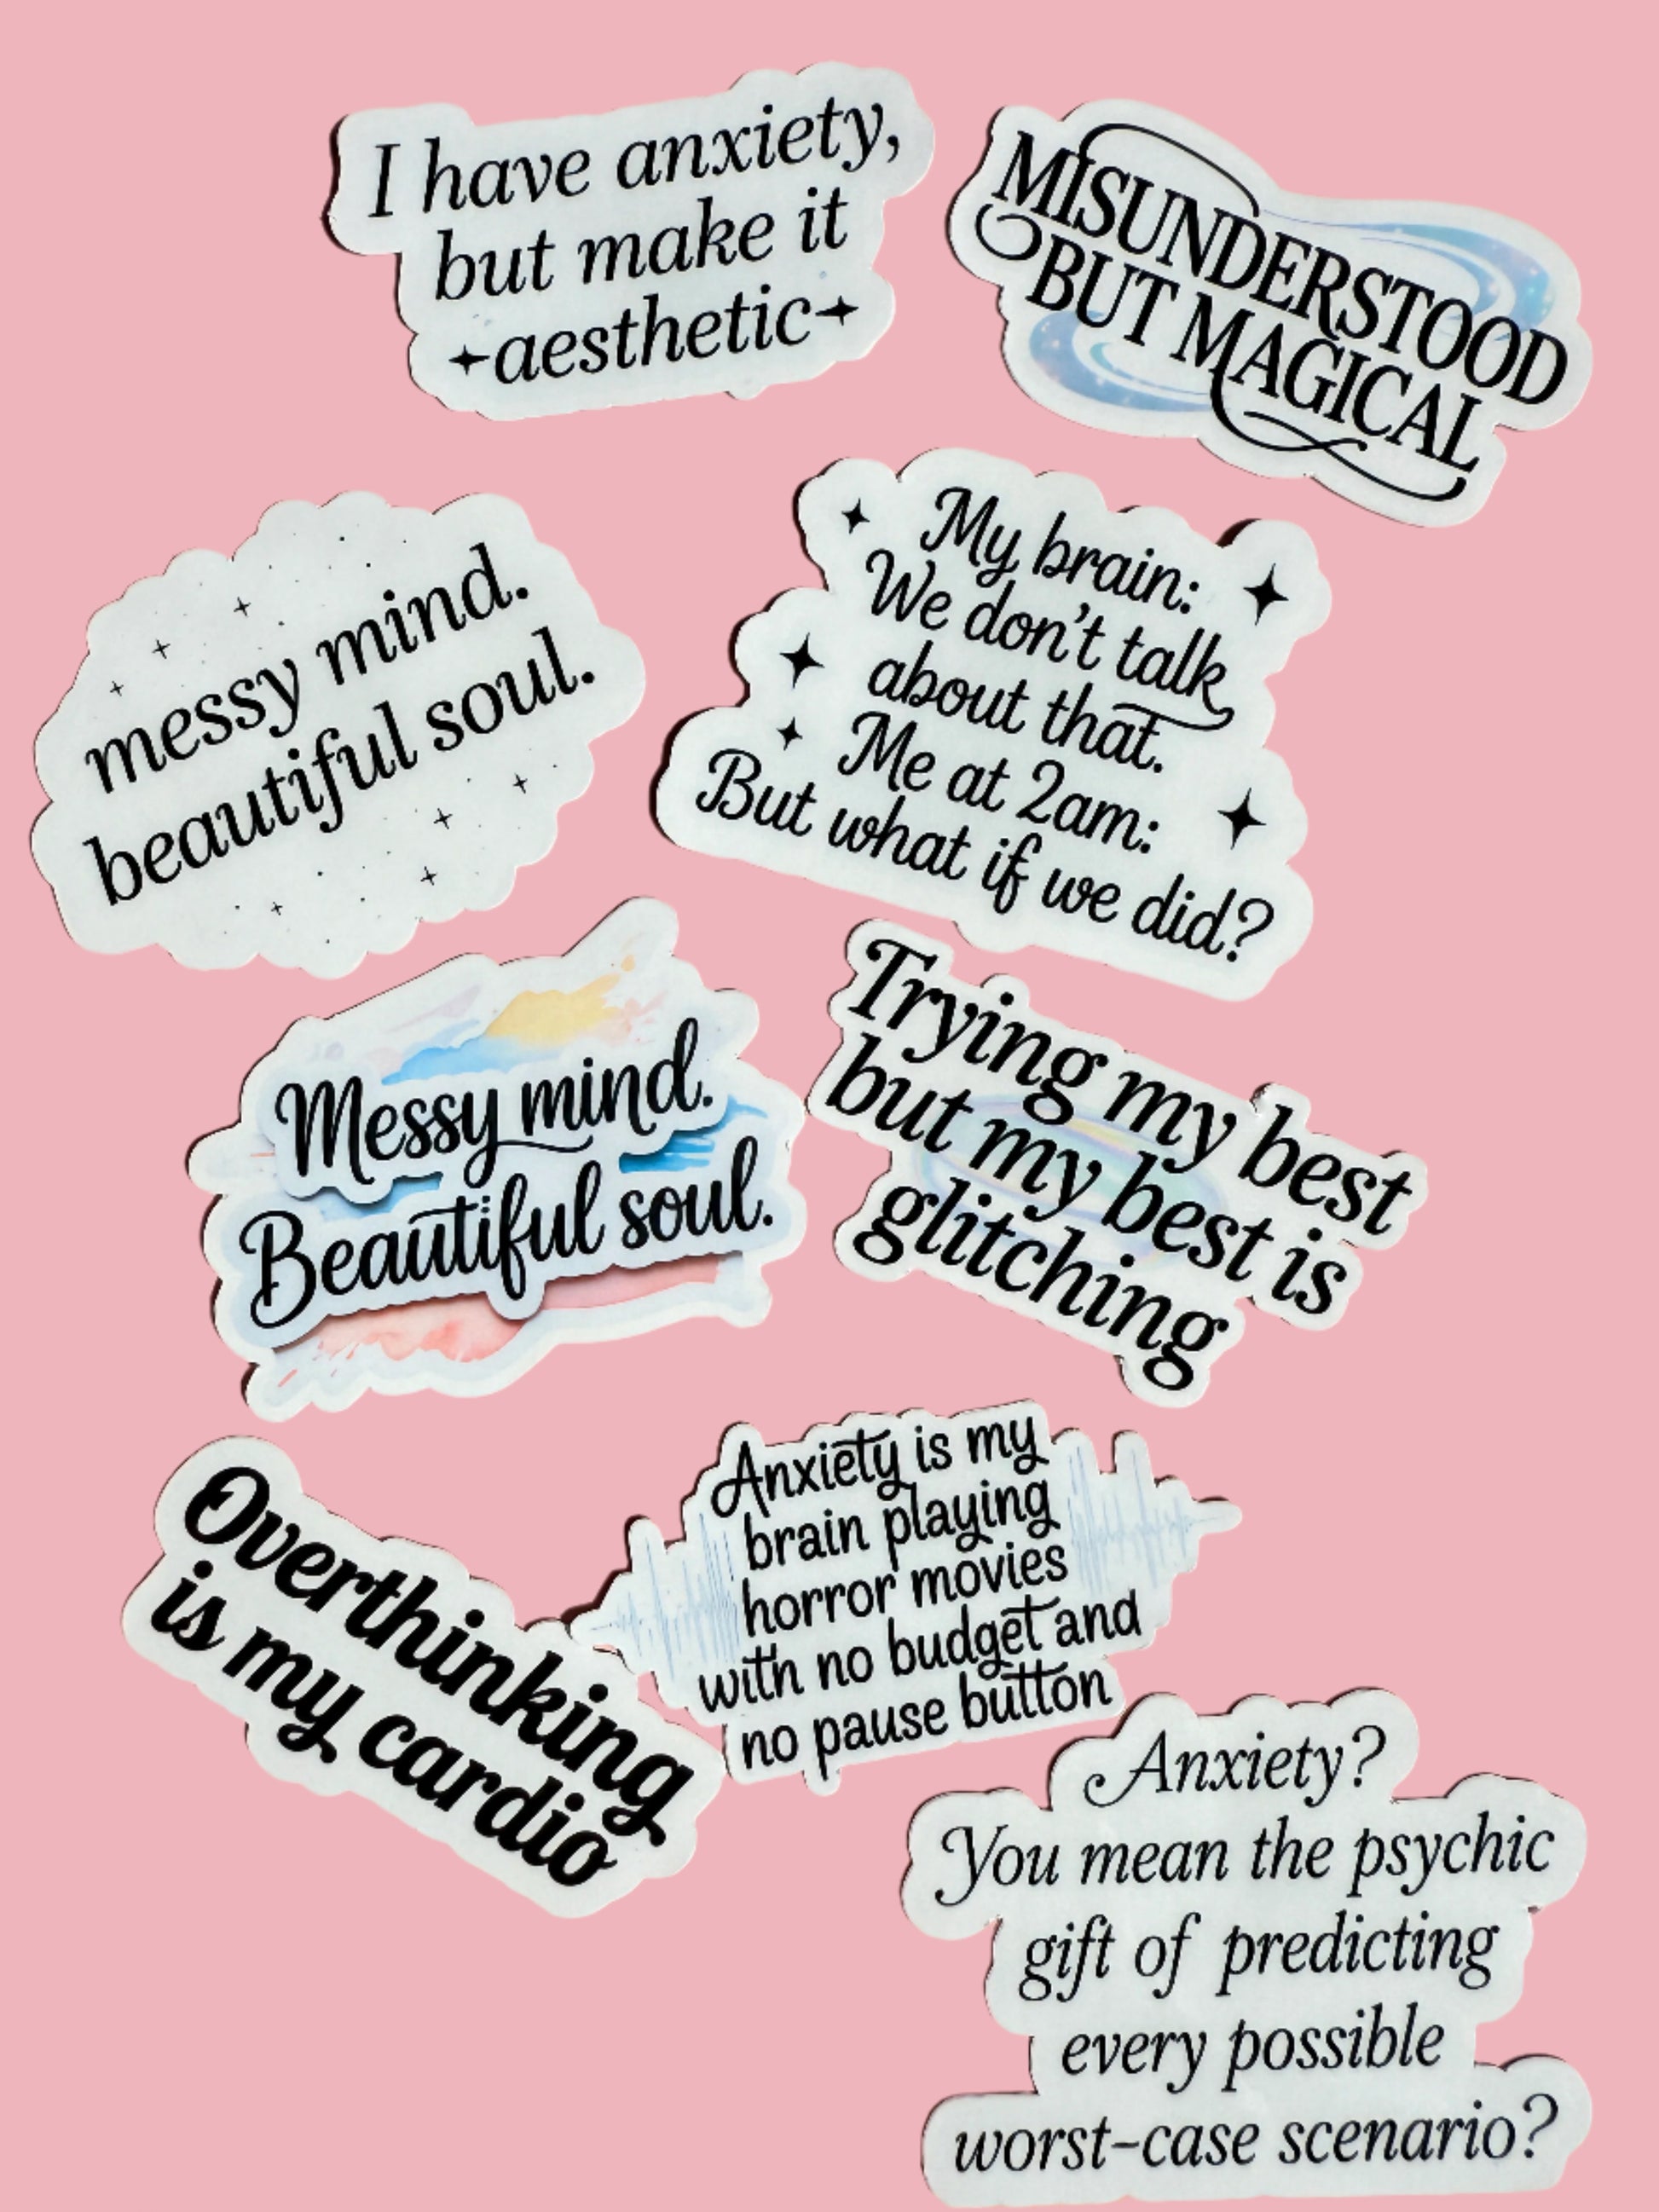 I have anxiety,
but make it
aesthetic
MISUNDERSTOOD
BUT MAGICAL
messy mind.
beautiful soul.
My brain:
We don't talk
about that.
Me at 2am:
But what if we did?
Messy mind.
Beautiful soul.
Trying my best
but my best is
glitching
Overthinking
is my cardio
Anxiety is my
brain playing
horror movies
with no budget and
no pause button
Anxiety?
You mean the psychic
gift of predicting
every possible
worst-case scenario?